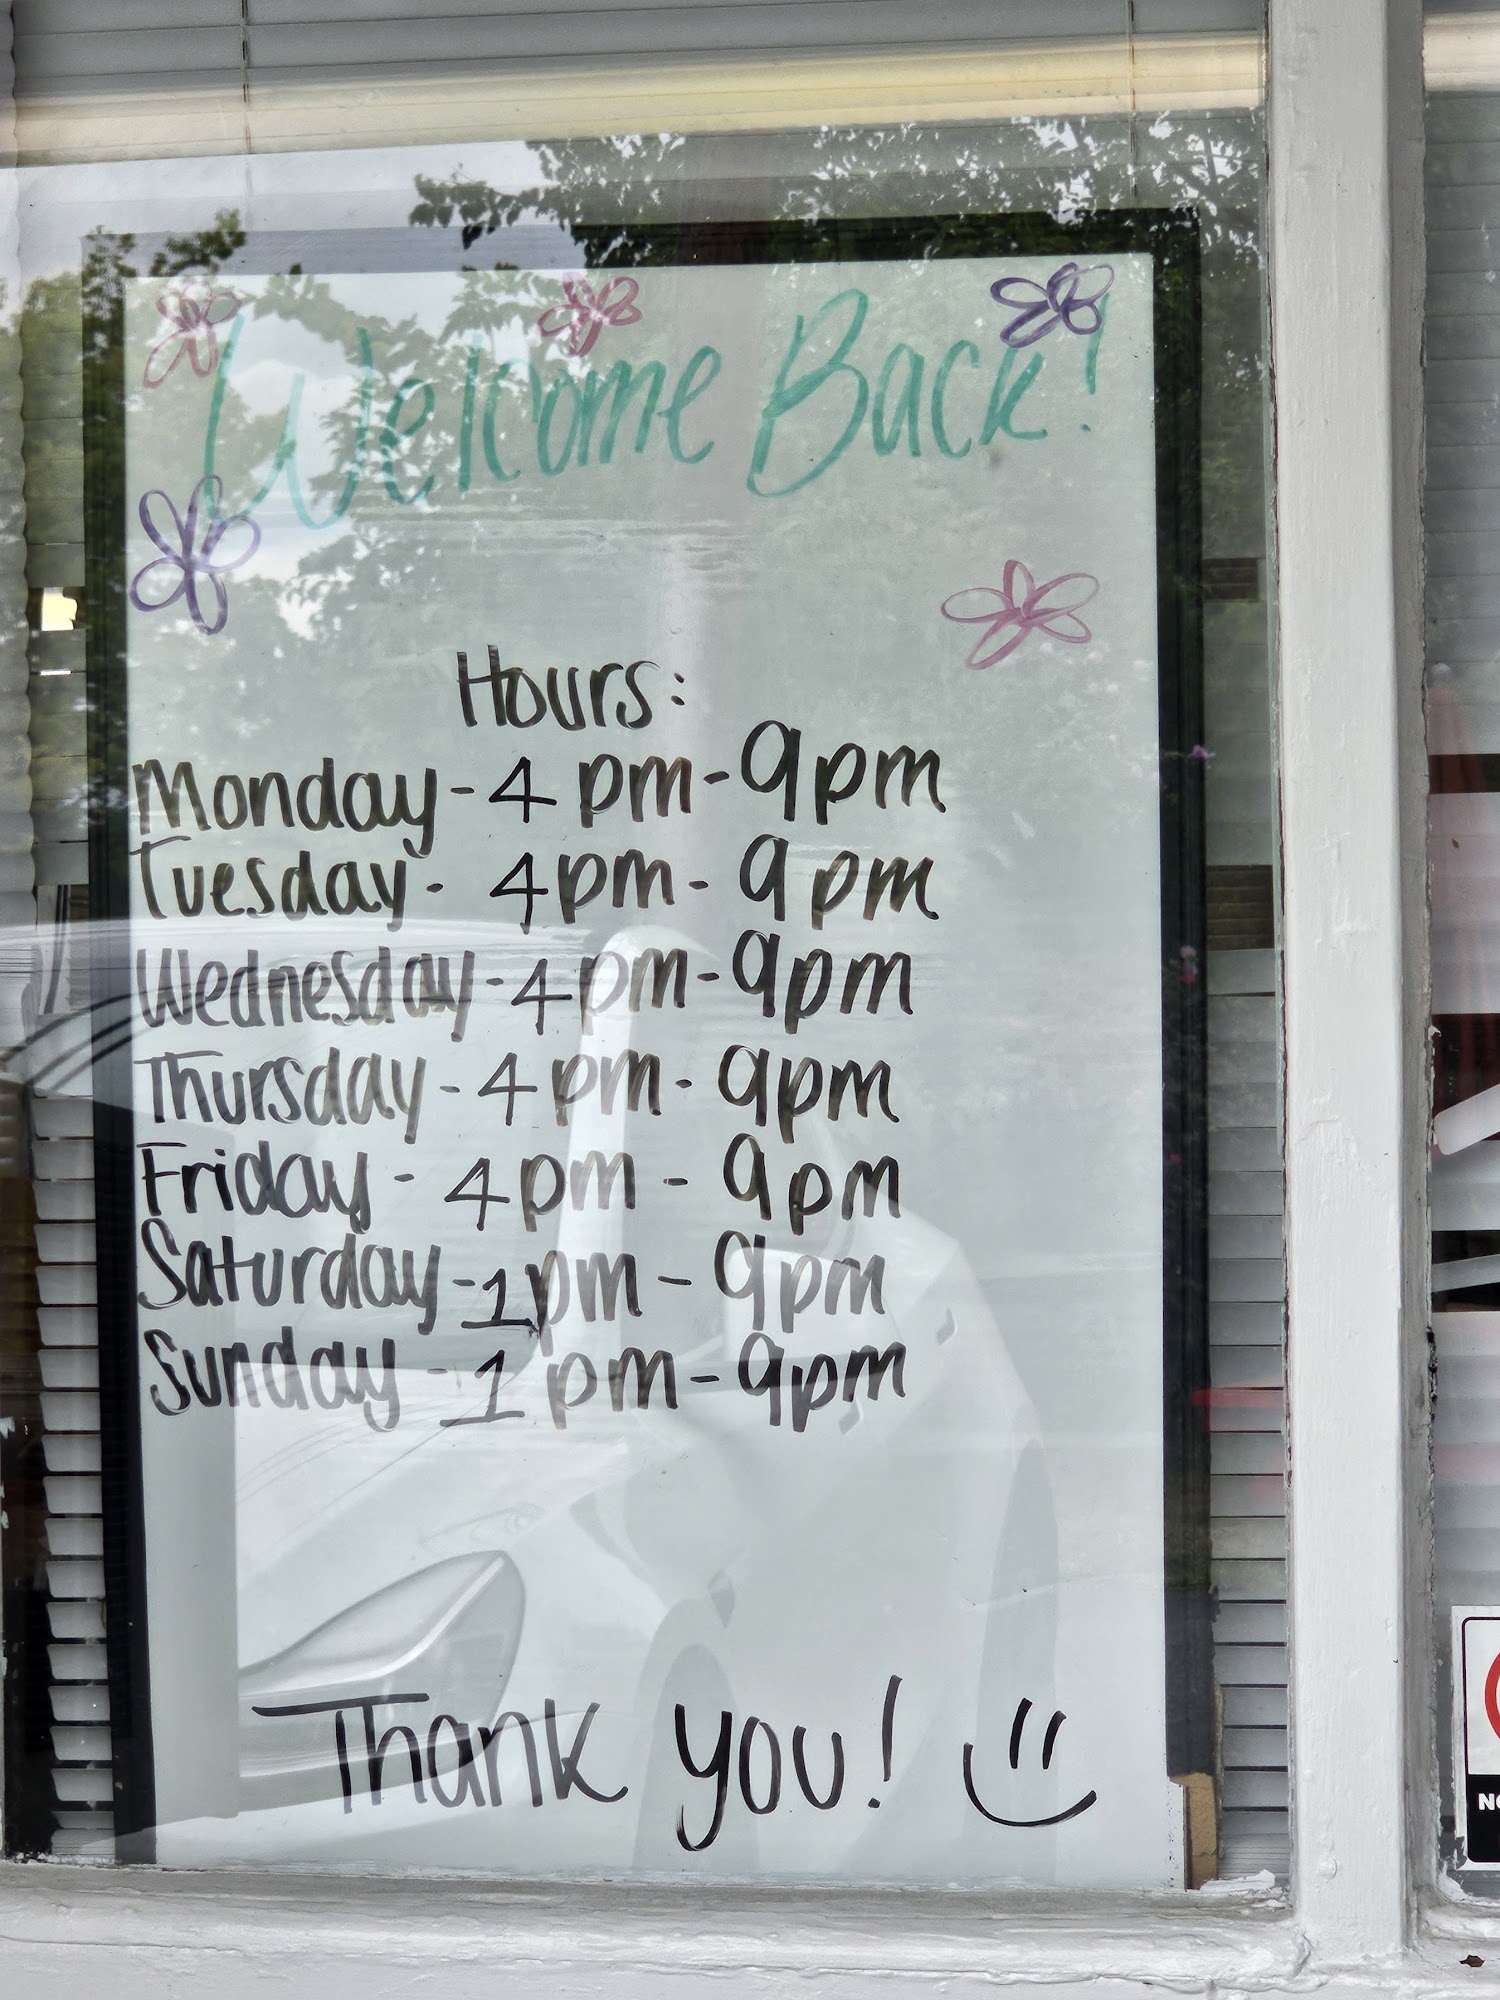 Welcome Back!
Hours:
Monday - 4pm - 9pm
Tuesday - 4pm - 9pm
Wednesday - 4pm - 9pm
Thursday - 4pm - 9pm
Friday - 4pm - 9pm
Saturday - 1pm - 9pm
Sunday - 1pm - 9pm
Thank you!